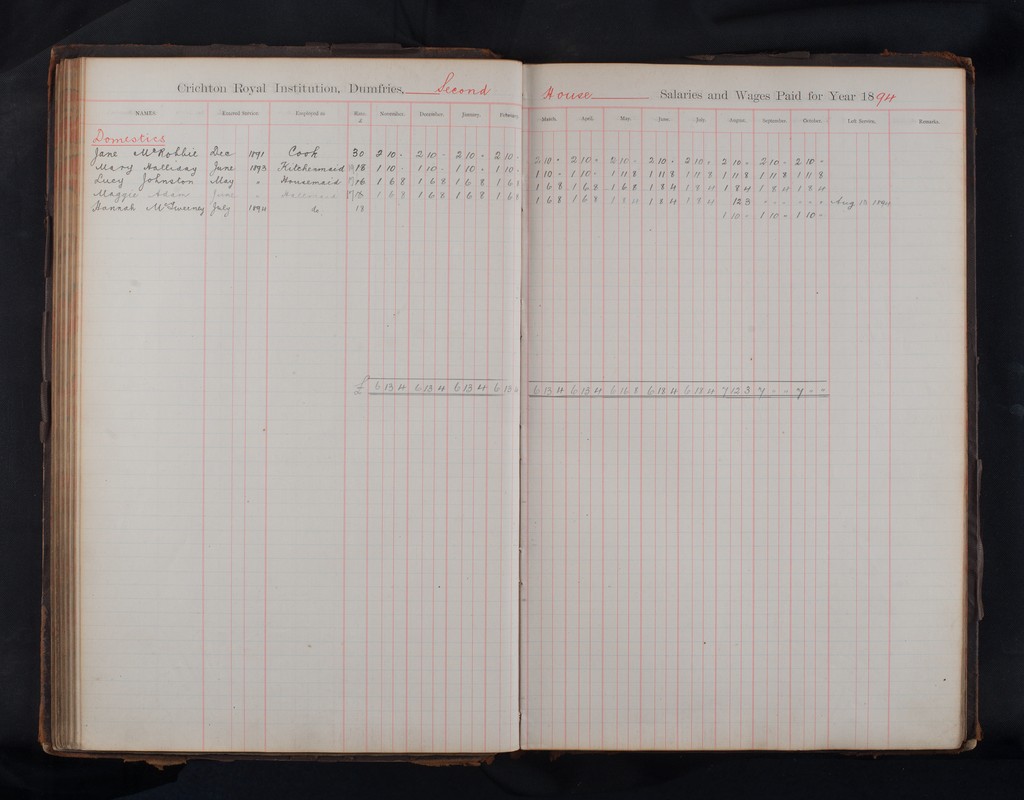 Crichton Royal Institution, Dumfries, Second House Salaries and Wages Paid for Year 1894
NAMES Entered Service Employed as November. December. January. February. March. April. May. June. July. August. September. October. Left Service. Remarks.
Domestics
Jane McRobbie Dec 1891 Cook 30 2 10 - 2 10 - 2 10 - 2 10 - 2 10 - 2 10 - 2 10 - 2 10 - 2 10 - 2 10 - 2 10 - 2 10 -
Mary Halliday June 1893 Kitchenmaid 18 1 10 - 1 10 - 1 10 - 1 10 - 1 10 - 1 10 - 1 11 8 1 11 8 1 11 8 1 11 8 1 11 8 1 11 8
Lucy Johnston May " Housemaid 16 1 6 8 1 6 8 1 6 8 1 6 8 1 6 8 1 6 8 1 6 8 1 8 4 1 8 4 1 8 4 1 8 4
Maggie Adam June " 1 6 8 1 6 8 1 6 8 1 6 8 1 6 8 1 6 8 1 8 4 1 8 4 12 3 - - - - - - Aug 13 1894
Hannah McSweeney July 1894 do 18 1 10 - 1 10 - 1 10 -
6 13 4 6 13 4 6 13 4 6 13 4 6 13 4 6 13 4 6 16 8 6 18 4 6 18 4 7 12 3 7 - - 7 - -